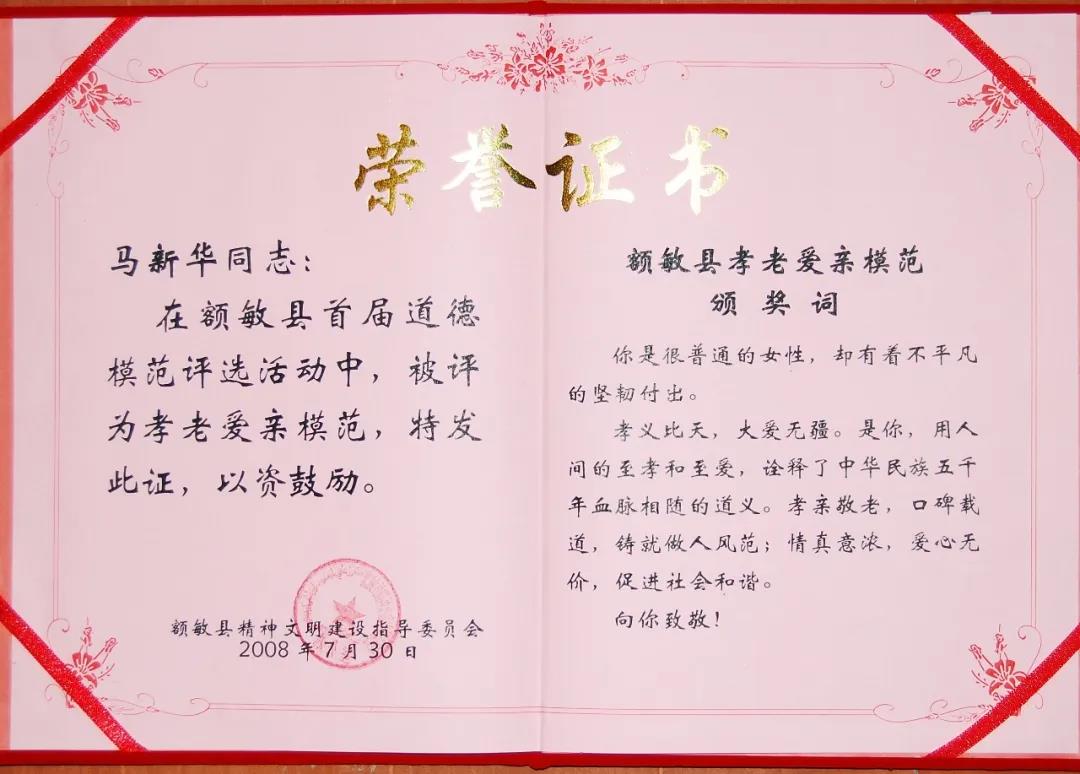 荣誉证书
马新华同志：
在额敏县首届道德
模范评选活动中，被评
为孝老爱亲模范，特发
此证，以资鼓励。
额敏县精神文明建设指导委员会
2008年7月30日
额敏县孝老爱亲模范
颁奖词
你是很普通的女性，却有着不平凡
的坚韧付出。
孝义比天，大爱无疆。是你，用人
间的至孝和至爱，诠释了中华民族五千
年血脉相随的道义。孝亲敬老，口碑载
道，铸就做人风范；情真意浓，爱心无
价，促进社会和谐。
向你致敬！